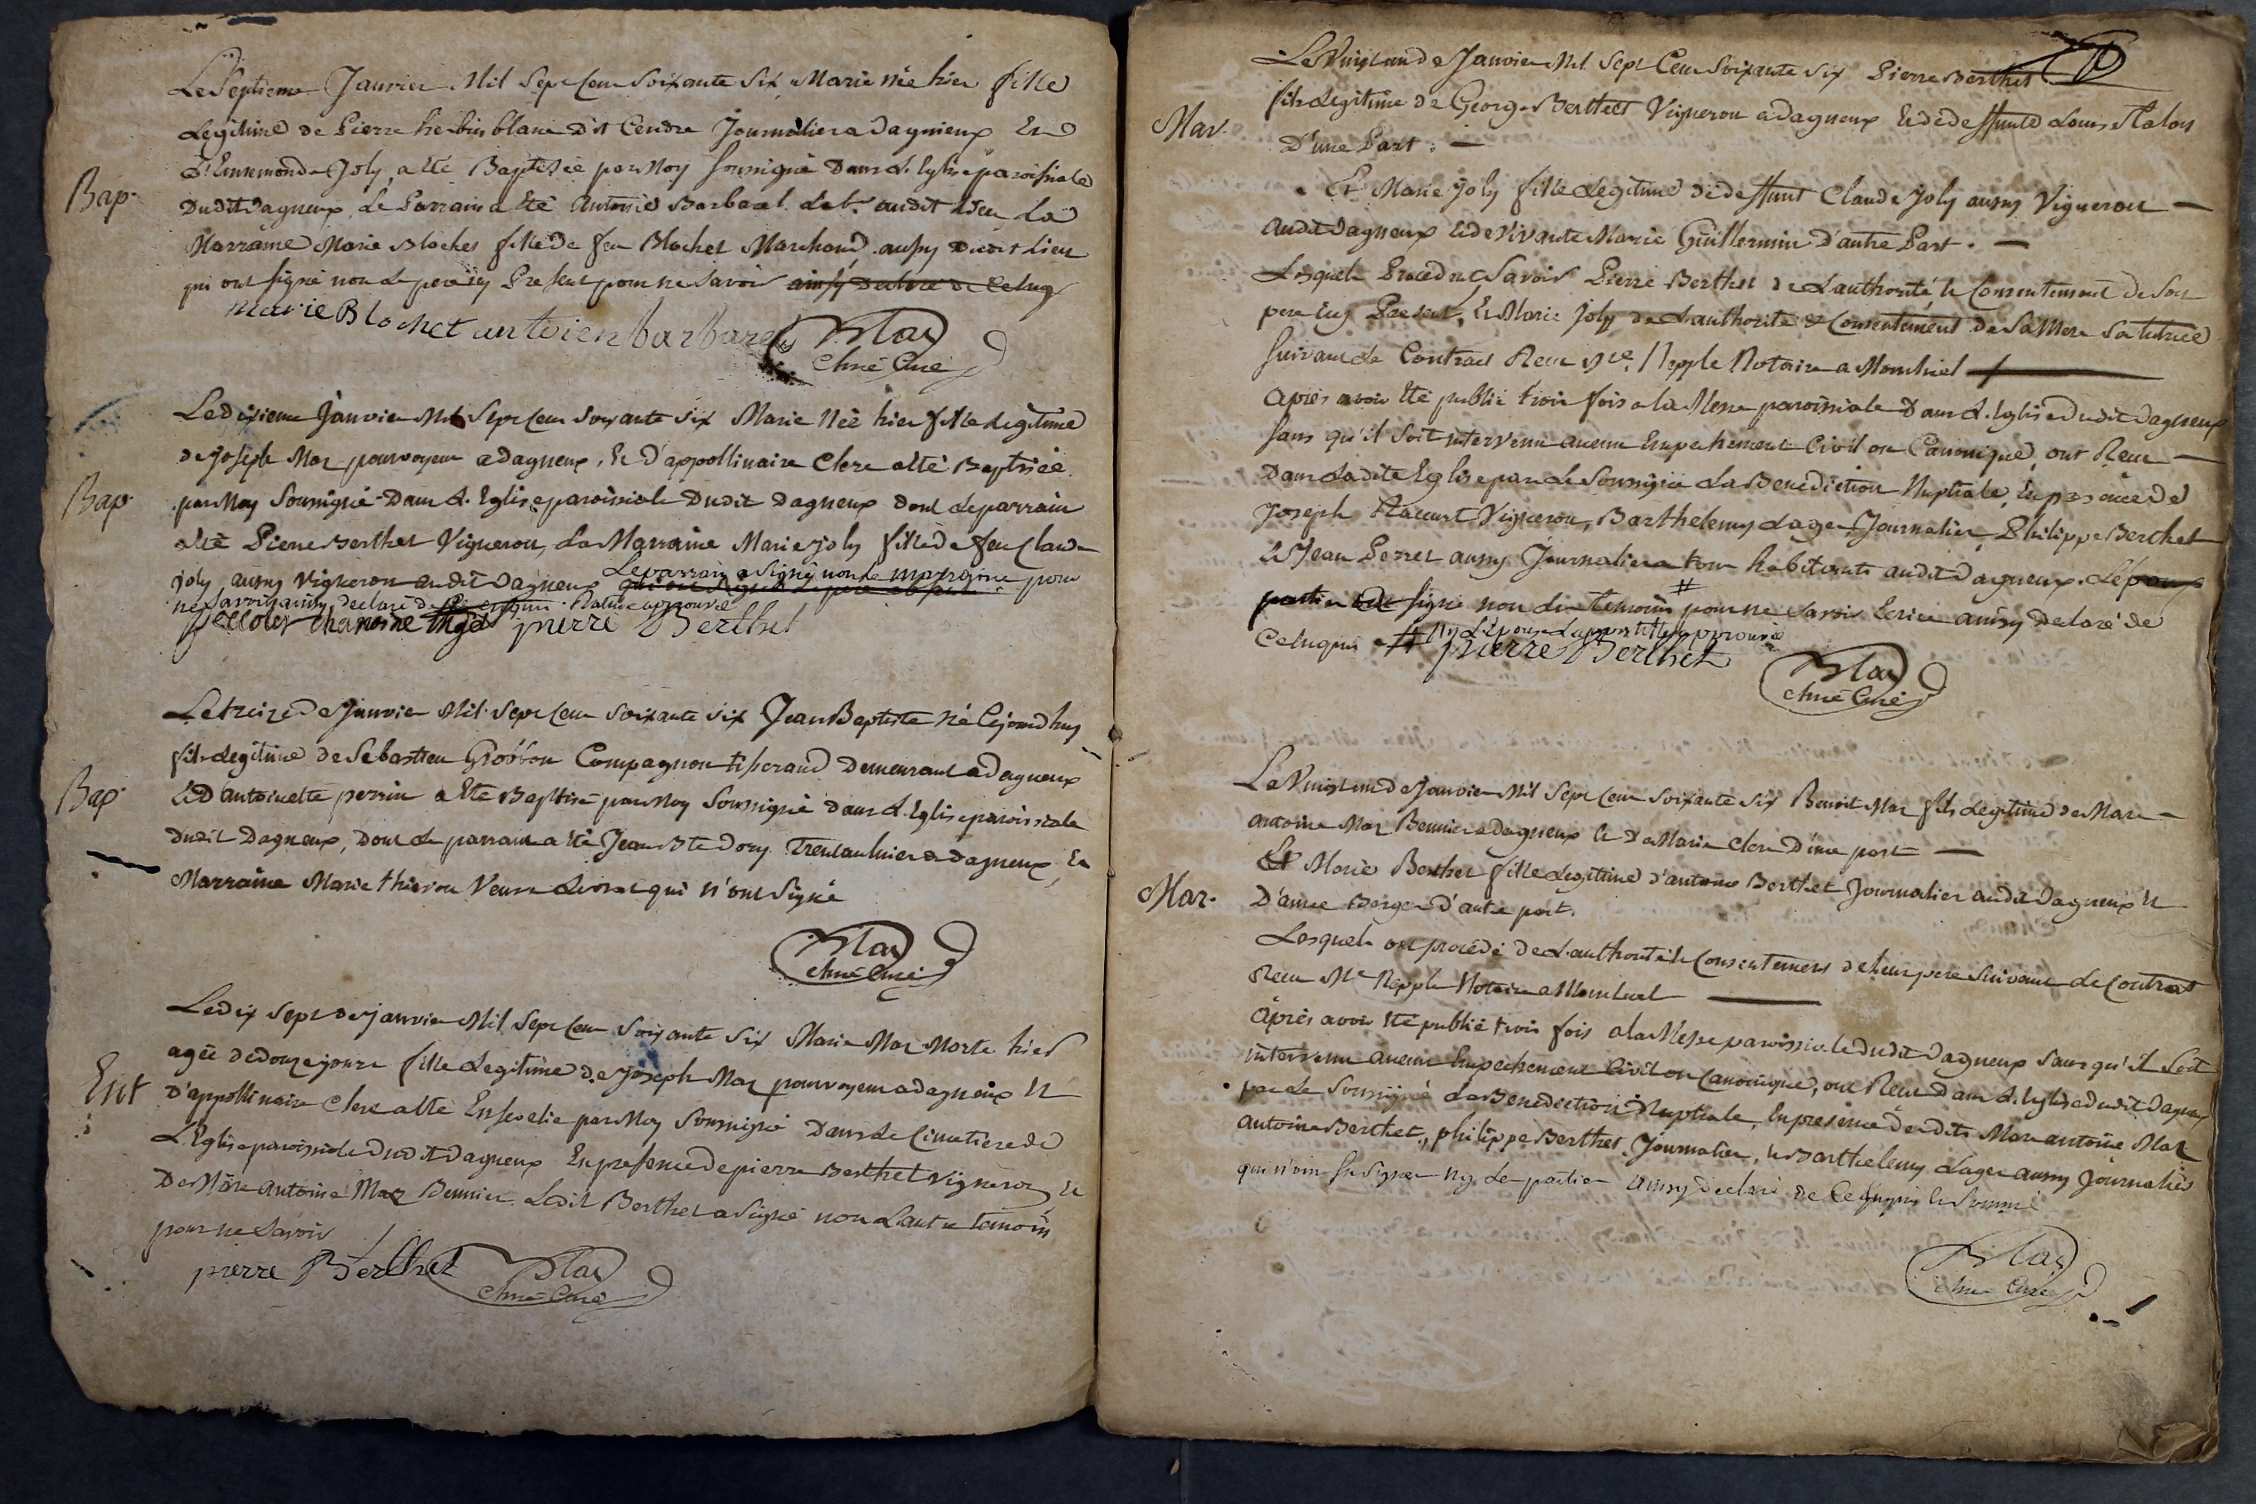 Bap.
Le Septieme Janvier Mil Sept Cent Soixante Six Marie née hier fille
Legitime de Pierre herbin blanc dit Cendre Journalier a Dagnieux Et
d'Ennemonde Joly, a été Baptisée par Moy soussigné Dans L'Eglise paroissiale
Dudit Dagneux, Le Parrain a été Antoine Barbaret Lab.r audit Lieu La
Marraine Marie Blochet fille de feu Blochet Marchand aussy dudit Lieu
qui ont signé non Le pere icy Present pour ne Savoir ainsy declaré de Ce
Marie Blochet antoien barbaret Maz
Chne Curé
Bap.
Le dixieme Janvier Mil Sept Cent Soixante Six Marie Née hier fille Legitime
de Joseph Maz pourvoyeur a dagneux, Et d'appollinaire Clerc a été Baptisée
par Moy Soussigné Dans L'Eglise paroissiale Dudit Dagneux dont Le parrain
a été Pierre Berthet Vigneron, La Marraine Marie joly fille de feu Claude
joly aussy vigneron audit Dagneux Le parrain a signé non La marraine pour
ne Savoir ainsy declaré de Rature approuvé
chanoine pierre Berthet
Bap.
Le treize de Janvier Mil Sept Cent Soixante Six Jean Baptiste né Cejourdhuy
fils Legitime de Sebastien Compagnon tisserand Demeurant a Dagneux
Et d'antoinette perrin a été Baptisé par Moy Soussigné dans L'Eglise paroissiale
dudit Dagneux, dont Le parrain a été Jean Bte Dory a dagneux Et
Marraine Marie thievon Veuve qui n'ont Signé
Maz
Chne Curé
Ent
Le dix sept de janvier Mil Sept Cent Soixante Six Marie Maz Morte hier
agée de douze jours fille Legitime de Joseph Maz pourvoyeur a dagneux Et
D'appollinaire Clerc a été Ensevelie par Moy Soussigné Dans Le Cimetiere de
L'Eglise paroissiale Dudit Dagneux En presence de pierre Berthet vigneron, Et
De Marc Antoine Maz Bennier Ledit Berthet a Signé non L'autre temoin
pour ne Savoir
pierre Berthet Maz
Chne Curé
Mar.
Le Vingt un de Janvier Mil Sept Cent Soixante Six Pierre Berthet
fils Legitime de George Berthet Vigneron a dagneux Et de deffunte Louise
D'une Part.
Et Marie Joly fille Legitime de deffunt Claude Joly aussy Vigneron
audit Dagneux Et de Vivante Marie Guillermin d'autre Part.
Lesquels Procedent Savoir Pierre Berthet de L'authorité et Consentement de Son
pere Icy Present, Et Marie joly de L'authorité et Consentement de Sa Mere Sa tutrice
suivant Le Contract Recu Me. Nepple Notaire a Montluel
Apres avoir été publié trois fois a la Messe paroissiale Dans L'Eglise Dudit Dagneux
sans qu'il Soit intervenu aucun Empechement Civil ou Canonique, ont Recu
Dans Ladite Eglise par Le Soussigné La Benediction Nuptiale, En presence de
Joseph Vigneron, Barthelemy Lager Journalier, Philippe Berthet
Et Jean Perret aussy Journalier tous habitants audit Dagneux. L'epoux
a signé non Les temoins # pour ne Savoir Ecrire ainsy declaré de
Ce enquis # Ny L'Epouse L'apostille approuvée
pierre Berthet
Maz
Chne Curé
Mar.
Le Vingt un de Janvier Mil Sept Cent Soixante Six Benoit Maz fils Legitime de Marc
antoine Maz Bennier a Dagneux Et De Marie Clerc D'une part
Et Marie Berthet fille Legitime d'antoine Berthet Journalier audit Dagneux Et
D'aimee Berger D'autre part.
Lesquels ont procedé de L'authorité et Consentement de Leur pere Suivant Le Contrat
Recu Me Nepple Notaire a Montluel
Apres avoir été publié trois fois a La Messe paroissiale Dudit Dagneux Sans qu'il Soit
intervenu aucun Empechement Civil ou Canonique, ont Recu Dans L'Eglise dudit Dagneux
par Le Soussigné La Benediction Nuptiale, En presence desdits Marc antoine Maz
antoine Berthet, philippe Berthet Journalier, Et Barthelemy Lager aussy Journalier
qui n'ont Su signer ny Les parties ainsy declaré de Ce enquis Et Sommé
Maz
Chne Curé